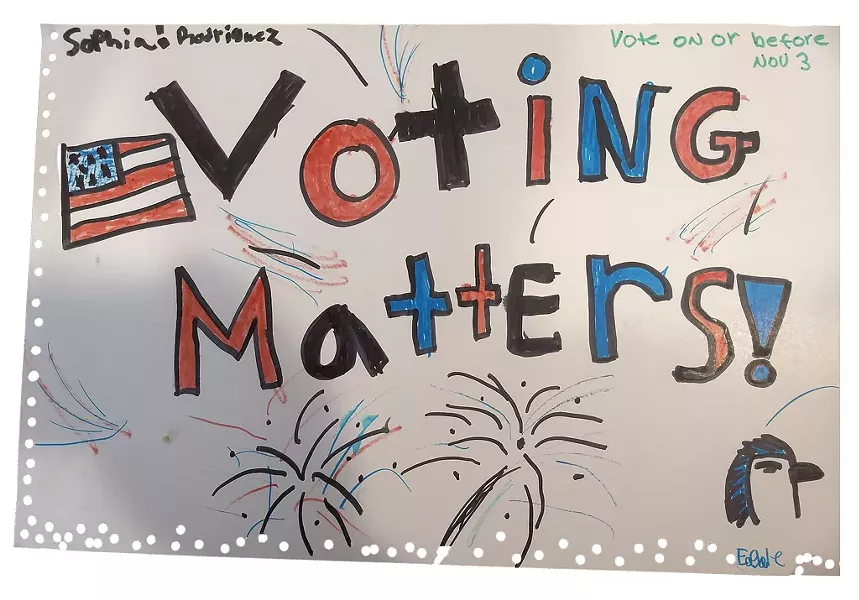 Sophia! Rodriguez
Vote on or before
Nov 3
VOtiNG
Matters!